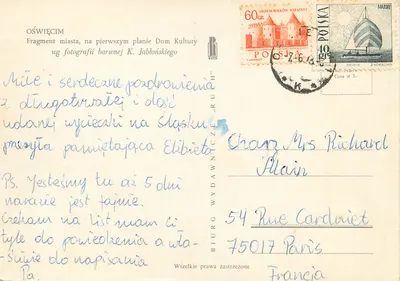 OŚWIĘCIM
Fragment miasta, na pierwszym planie Dom Kultury
wg fotografii barwnej K. Jabłońskiego
Miłe i serdeczne pozdrowienia
z długotrwałej i dość
udanej wycieczki na Śląsku
przesyła pamiętająca Elżbieta
Ps. Jesteśmy tu aż 5 dni
narazie jest fajnie.
Czekam na list mam Ci
tyle do powiedzenia a wła-
ściwie do napisania
Pa.
BIURO WYDAWNICZE „RUCH”
Wszelkie prawa zastrzeżone
60
GR
40
GR
POLSKA
Mrs Richard
54 Rue Cardinet
75017 Paris
Francja